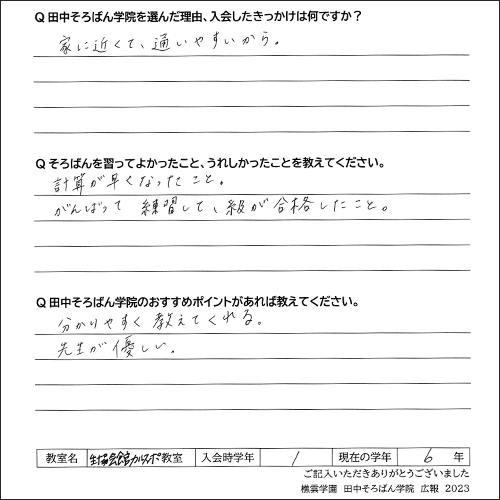 Q 田中そろばん学院を選んだ理由、入会したきっかけは何ですか？
家に近くて、通いやすいから。
Q そろばんを習ってよかったこと、うれしかったことを教えてください。
計算が早くなったこと。
がんばって 練習して、級が合格したこと。
Q 田中そろばん学院のおすすめポイントがあれば教えてください。
分かりやすく教えてくれる。
先生が優しい。
教室名 教室 入会時学年 1 現在の学年 6 年
ご記入いただきありがとうございました
樵雲学園 田中そろばん学院 広報 2023